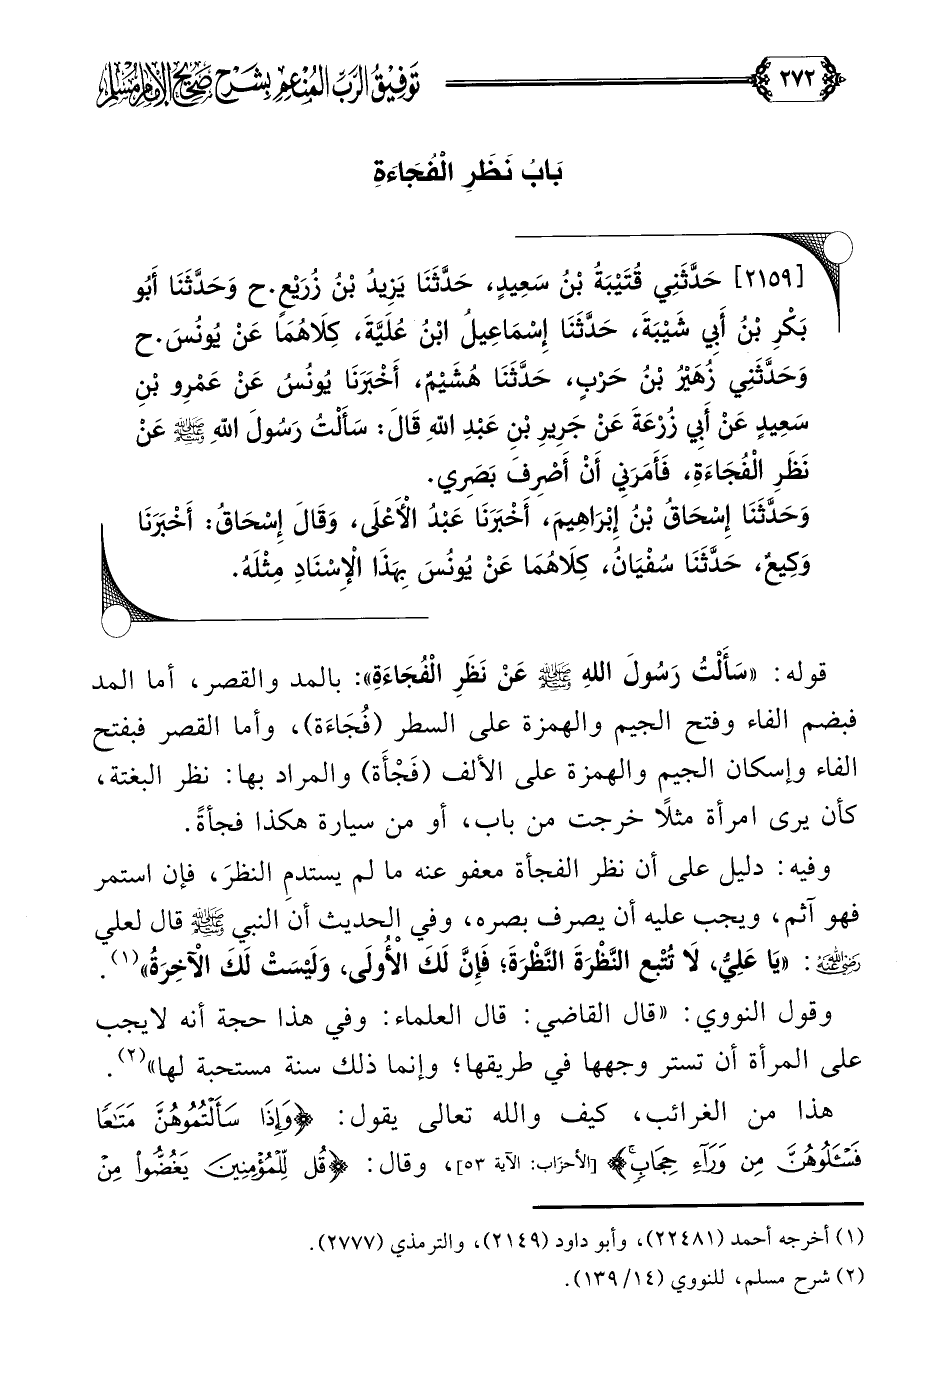 ٢٧٢
توفيق الرب المنعم بشرح صحيح الإمام مسلم
بَابُ نَظَرِ الْفُجَاءَةِ
[٢١٥٩] حَدَّثَنِي قُتَيْبَةُ بْنُ سَعِيدٍ، حَدَّثَنَا يَزِيدُ بْنُ زُرَيْعٍ.ح وَحَدَّثَنَا أَبُو
بَكْرِ بْنُ أَبِي شَيْبَةَ، حَدَّثَنَا إِسْمَاعِيلُ ابْنُ عُلَيَّةَ، كِلَاهُمَا عَنْ يُونُسَ.ح
وَحَدَّثَنِي زُهَيْرُ بْنُ حَرْبٍ، حَدَّثَنَا هُشَيْمٌ، أَخْبَرَنَا يُونُسُ عَنْ عَمْرِو بْنِ
سَعِيدٍ عَنْ أَبِي زُرْعَةَ عَنْ جَرِيرِ بْنِ عَبْدِ اللهِ قَالَ: سَأَلْتُ رَسُولَ اللهِ ﷺ عَنْ
نَظَرِ الْفُجَاءَةِ، فَأَمَرَنِي أَنْ أَصْرِفَ بَصَرِي.
وَحَدَّثَنَا إِسْحَاقُ بْنُ إِبْرَاهِيمَ، أَخْبَرَنَا عَبْدُ الْأَعْلَى، وَقَالَ إِسْحَاقُ: أَخْبَرَنَا
وَكِيعٌ، حَدَّثَنَا سُفْيَانُ، كِلَاهُمَا عَنْ يُونُسَ بِهَذَا الْإِسْنَادِ مِثْلَهُ.
قوله: «سَأَلْتُ رَسُولَ اللهِ ﷺ عَنْ نَظَرِ الْفُجَاءَةِ»: بالمد والقصر، أما المد
فبضم الفاء وفتح الجيم والهمزة على السطر (فُجَاءَة)، وأما القصر فبفتح
الفاء وإسكان الجيم والهمزة على الألف (فَجْأَة) والمراد بها: نظر البغتة،
كأن يرى امرأة مثلًا خرجت من باب، أو من سيارة هكذا فجأةً.
وفيه: دليل على أن نظر الفجأة معفو عنه ما لم يستدمِ النظرَ، فإن استمر
فهو آثم، ويجب عليه أن يصرف بصره، وفي الحديث أن النبي ﷺ قال لعلي
رضي الله عنه: «يَا عَلِيُّ، لَا تُتْبِعِ النَّظْرَةَ النَّظْرَةَ؛ فَإِنَّ لَكَ الْأُولَى، وَلَيْسَتْ لَكَ الْآخِرَةُ»(١).
وقول النووي: «قال القاضي: قال العلماء: وفي هذا حجة أنه لايجب
على المرأة أن تستر وجهها في طريقها؛ وإنما ذلك سنة مستحبة لها»(٢).
هذا من الغرائب، كيف والله تعالى يقول: ﴿وَإِذَا سَأَلْتُمُوهُنَّ مَتَٰعًا
فَسْـَٔلُوهُنَّ مِن وَرَآءِ حِجَابٍ﴾ [الأحزَاب: الآية ٥٣]، وقال: ﴿قُل لِّلْمُؤْمِنِينَ يَغُضُّوا۟ مِنْ
(١) أخرجه أحمد (٢٢٤٨١)، وأبو داود (٢١٤٩)، والترمذي (٢٧٧٧).
(٢) شرح مسلم، للنووي (١٤/ ١٣٩).